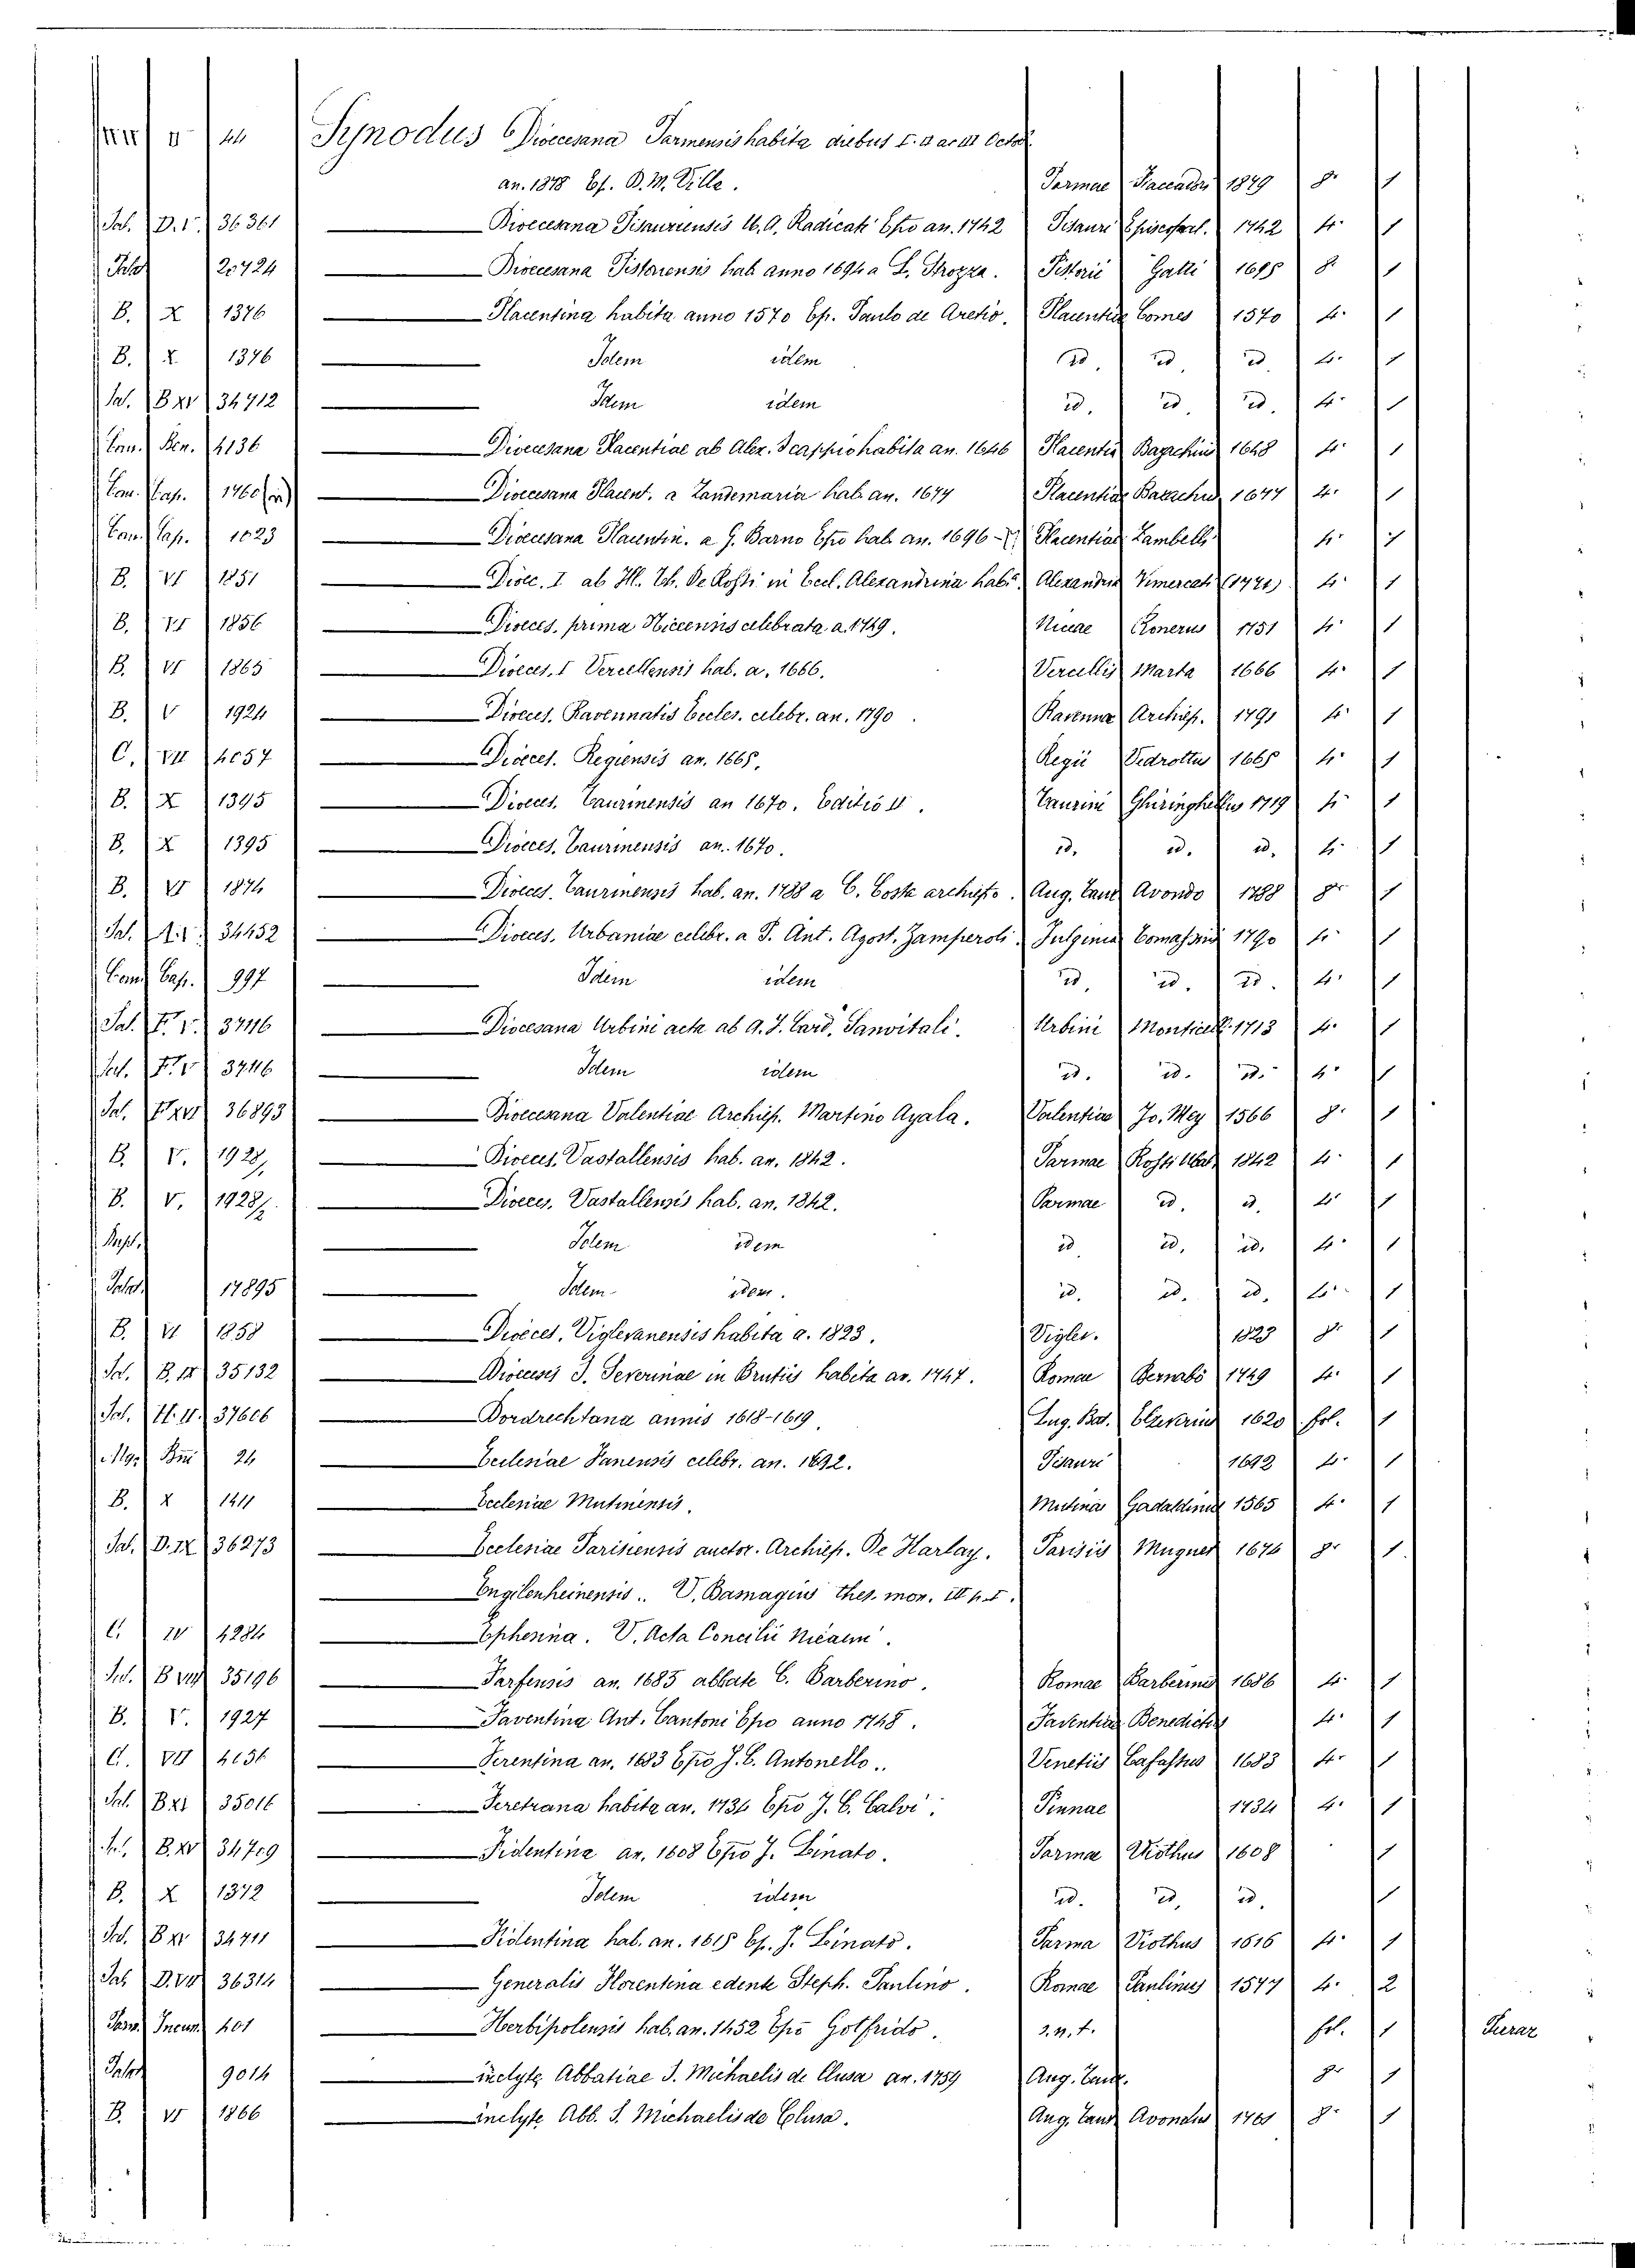 44 Synodus Diœcesana Parmensis habita diebus I. II ac III Octob.
an. 1878 Ep. D. M. Ville. Parmae Fiaccadori 1879 8º 1
Sal. D. V. 36361 — Diœcesana Pisauriensis U. A. Radicati Epo an. 1742 Pisauri Episcopal. 1742 4º 1
Salot 20724 — Diœcesana Pistoriensis hab anno 1694 a L. Strozza. Pistorii Gatti 1695 8º 1
B. X 1376 — Placentina habita anno 1570 Ep. Paulo de Aretio. Placentiae Comes 1570 4º 1
B. X 1376 — Idem idem id. id. id. 4º 1
Sal. B XV 34712 — Idem idem id. id. id. 4º 1
Cam. Ben. 4136 — Diœcesana Placentiae ab Alex. Scappio habita an. 1646 Placentiæ Bazachius 1648 4º 1
Cam. Cap. 1760 — Diœcesana Placent. a Zandemaria hab. an. 1677 Placentiae Bazachii 1677 4º 1
Cam. Cap. 1023 — Diœcesana Placentin. a G. Barno Epo hab an. 1696 Placentiae Zambelli 4º 1
B. VI 1851 — Diœc. I ab Ill. Th. De Rossi in Eccl. Alexandrina habº. Alexandriæ Vimercati (1771) 4º 1
B. VI 1856 — Dioeces. prima Nicaensis celebrata a. 1749. Niceae Conerus 1751 4º 1
B. VI 1865 — Dioeces. I Vercellensis hab. a. 1666. Vercellis Marta 1666 4º 1
B. V 1924 — Dioeces. Ravennatis Eccles. celebr. an. 1790. Ravennæ Archiep. 1791 4º 1
C. VII 4057 — Dioeces. Regiensis an. 1665. Regii Vedrottus 1665 4º 1
B. X 1395 — Dioeces. Taurinensis an 1670. Editio II. Taurini Ghiringhellus 1719 4º 1
B. X 1395 — Dioeces. Taurinensis an. 1670. id. id. id. 4º 1
B. VI 1874 — Dioeces. Taurinensis hab. an. 1788 a C. Costa archiepo. Aug. Taur. Avondo 1788 8º 1
Sal. A. V. 34452 — Dioeces. Urbaniae celebr. a P. Ant. Agost. Zamperoli. Fulginiæ Tomassini 1790 4º 1
Cam. Cap. 997 — Idem idem id. id. id. 4º 1
Sal. F. V. 37116 — Diocesana Urbini acta ab A. F. Card. Sanvitali. Urbini Monticelli 1713 4º 1
Sal. F. V. 37116 — Idem idem id. id. id. 4º 1
Sal. F XVI 36893 — Dioecesana Valentiae Archiep. Martino Ayala. Valentiae Jo. Mey 1566 8º 1
B. V. 1928/1 — Dioeces. Vastallensis hab. an. 1842. Parmae Rossi Ubal. 1842 4º 1
B. V. 1928/2 — Dioeces. Vastallensis hab. an. 1842. Parmae id. id. 4º 1
— Idem idem id. id. id. 4º 1
Salot 17895 — Idem idem. id. id. id. 4º 1
B. VI 1858 — Dioeces. Viglevanensis habita a. 1823. Viglev. 1823 8º 1
Sal. B. IX 35132 — Dioecesis S. Severinae in Brutiis habita an. 1747. Romae Bernabò 1749 4º 1
Sal. H. II. 37606 — Dordrechtana annis 1618-1619 Lug. Bat. Elzeviriis 1620 fol. 1
Mg. 24 — Ecclesiae Fanensis celebr. an. 1692. Pisauri 1692 4º 1
B. X 1411 — Ecclesiae Mutinensis. Mutinae Gadaldinus 1565 4º 1
Sal. D. IX 36273 — Ecclesiae Parisiensis auctor. Archiep. De Harlay. Parisiis Muguet 1674 8º 1
— Engilenheinensis.. V. Basnagius thes. mon. III p. I.
C. IV 4284 — Ephesina. V. Acta Concilii Nicaeni.
Sal. B VIII 35196 — Farfensis an. 1685 abbate C. Barberino. Romae Barberinus 1686 4º 1
B. V. 1927 — Faventina Ant. Cantoni Epo anno 1748. Faventiae Benedictis 4º 1
C. VII 4136 — Ferentina an. 1683 Epo J. C. Antonello.. Venetiis Cafassus 1683 4º 1
Sal. B XI 35016 — Feretrana habita an. 1734 Epo J. C. Calvi. Pinnae 1734 4º 1
Sal. B. XV 34709 — Fidentina an. 1608 Epo J. Linato. Parmae Viothus 1608 1
B. X 1372 — Idem idem id. id. id. 1
Sal. B XV 34711 — Fidentina hab. an. 1615 Ep. J. Linato. Parma Viothus 1616 4º 1
Sal. D. VII 36314 — Generalis Florentina edente Steph. Paulino. Romae Paulinus 1577 4º 2
Parm. Incun. 401 — Herbipolensis hab. an. 1452 Epo Gotfrido. s. n. t. fol. 1
Salot 9014 — inclytæ Abbatiae S. Michaelis de Clusa an. 1759 Aug. Taur. 8º 1
B. VI 1866 — inclytæ Abb. S. Michaelis de Clusa. Aug. Taur. Avondus 1761 8º 1